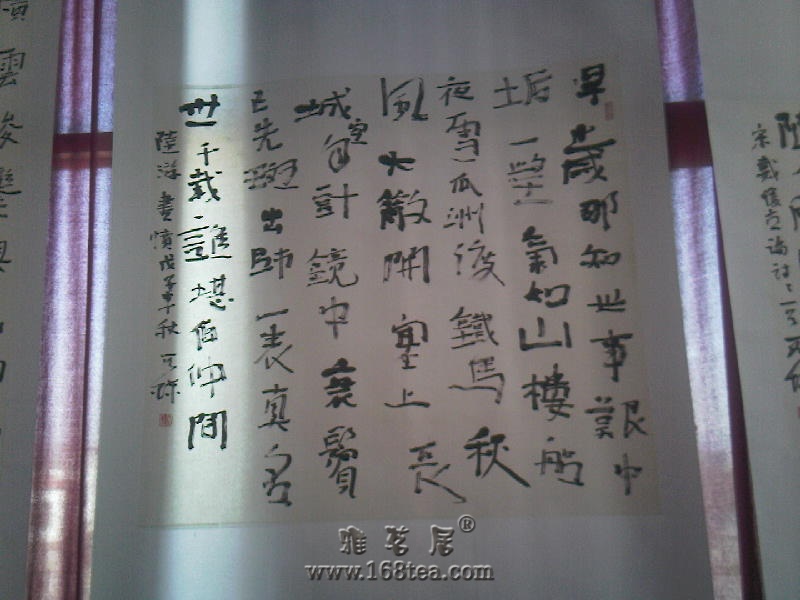 早歲那知世事艱中
原北望氣如山樓船
夜雪瓜洲渡鐵馬秋
風大散關塞上長
城空自許鏡中衰鬢
已先斑出師一表真名
世千載誰堪伯仲間
陸游書憤戊子年秋
宋戴復古論詩
雲
雅茗居®
www.168tea.com